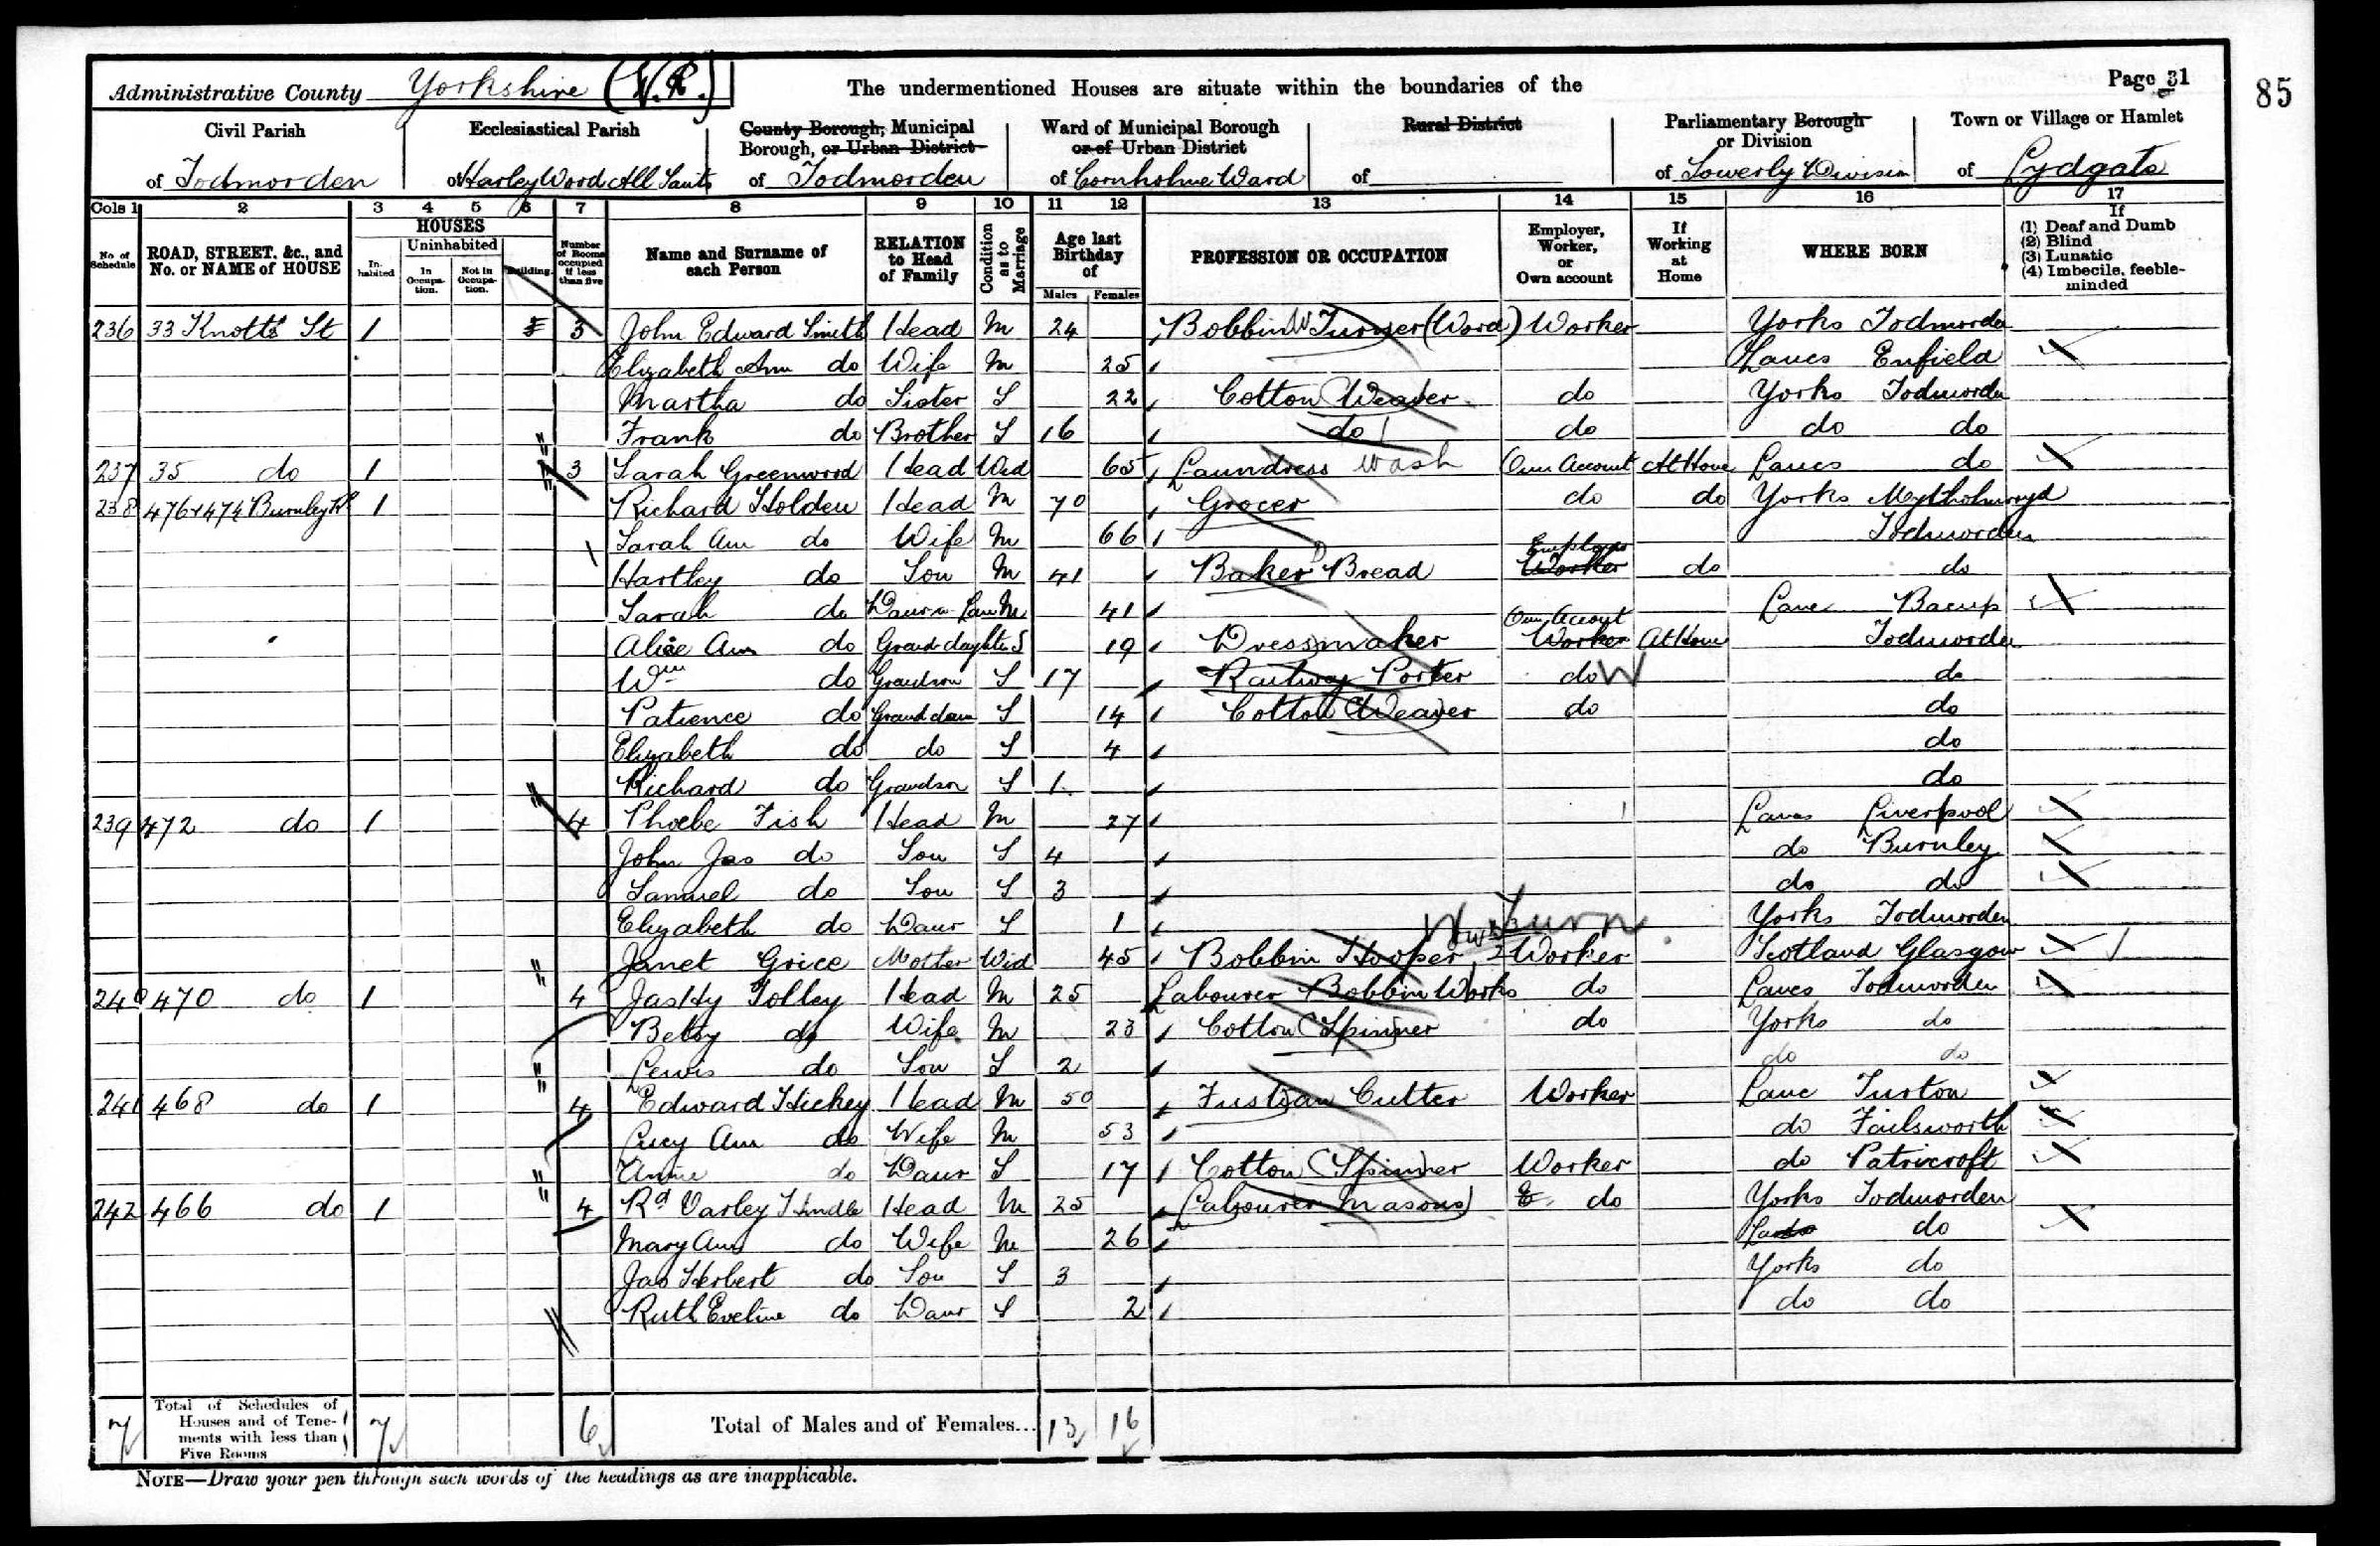 Administrative County Yorkshire (W.R.) The undermentioned Houses are situate within the boundaries of the Page 31
85
Civil Parish Ecclesiastical Parish County Borough, Municipal Borough, or Urban District Ward of Municipal Borough or of Urban District Rural District Parliamentary Borough or Division Town or Village or Hamlet
of Todmorden of Harley Wood All Saints of Todmorden of Cornholme Ward of of Sowerby Division of Lydgate
Cols 1 2 3 4 5 6 7 8 9 10 11 12 13 14 15 16 17
No of Schedule ROAD, STREET, &c., and No. or NAME of HOUSE HOUSES Inhabited Uninhabited In Occupation. Not in Occupation. Building. Number of Rooms occupied if less than five Name and Surname of each Person RELATION to Head of Family Condition as to Marriage Age last Birthday of Males Females PROFESSION OR OCCUPATION Employer, Worker, or Own account If Working at Home WHERE BORN If (1) Deaf and Dumb (2) Blind (3) Lunatic (4) Imbecile, feeble-minded
236 33 Knotts St 1 3 John Edward Smith Head M 24 Bobbin Turner (Wood) Worker Yorks Todmorden
Elizabeth Ann do Wife M 25 Lancs Enfield
Martha do Sister S 22 Cotton Weaver do Yorks Todmorden
Frank do Brother S 16 do do do do
237 35 do 1 3 Sarah Greenwood Head Wid 65 Laundress Wash Own Account At Home Lancs do
238 476 & 474 Burnley Rd 1 Richard Holden Head M 70 Grocer do do Yorks Mytholmroyd
Sarah Ann do Wife M 66 Todmorden
Hartley do Son M 41 Baker Bread Worker Employer do do
Sarah do Daur in Law M 41 Lanc Bacup
Alice Ann do Grand-daughter S 19 Dressmaker Worker Own Account At Home Todmorden
Wm do Grandson S 17 Railway Porter do W do
Patience do Grand daur S 14 Cotton Weaver do do
Elizabeth do do S 4 do
Richard do Grandson S 1 do
239 472 do 1 4 Phoebe Fish Head M 27 Lancs Liverpool
John Jas do Son S 4 do Burnley
Samuel do Son S 3 do do
Elizabeth do Daur S 1 Yorks Todmorden
Janet Grice Mother Wid 45 Bobbin Hooper Turn Worker Scotland Glasgow
240 470 do 1 4 Jas Hy Tolley Head M 25 Labourer Bobbin Works do Lancs Todmorden
Betsy do Wife M 23 Cotton Spinner do Yorks do
Lewis do Son S 2 do do
241 468 do 1 4 Edward Hickey Head M 50 Fustian Cutter Worker Lanc Turton
Lucy Ann do Wife M 53 do Failsworth
Annie do Daur S 17 Cotton Spinner Worker do Patricroft
242 466 do 1 4 Rd Varley Hindle Head M 25 Labourer Masons do Yorks Todmorden
Mary Ann do Wife M 26 do
Jas Herbert do Son S 3 Yorks do
Ruth Eveline do Daur S 2 do do
7 Total of Schedules of Houses and of Tenements with less than Five Rooms 7 6 Total of Males and of Females... 13 16
NOTE—Draw your pen through such words of the headings as are inapplicable.